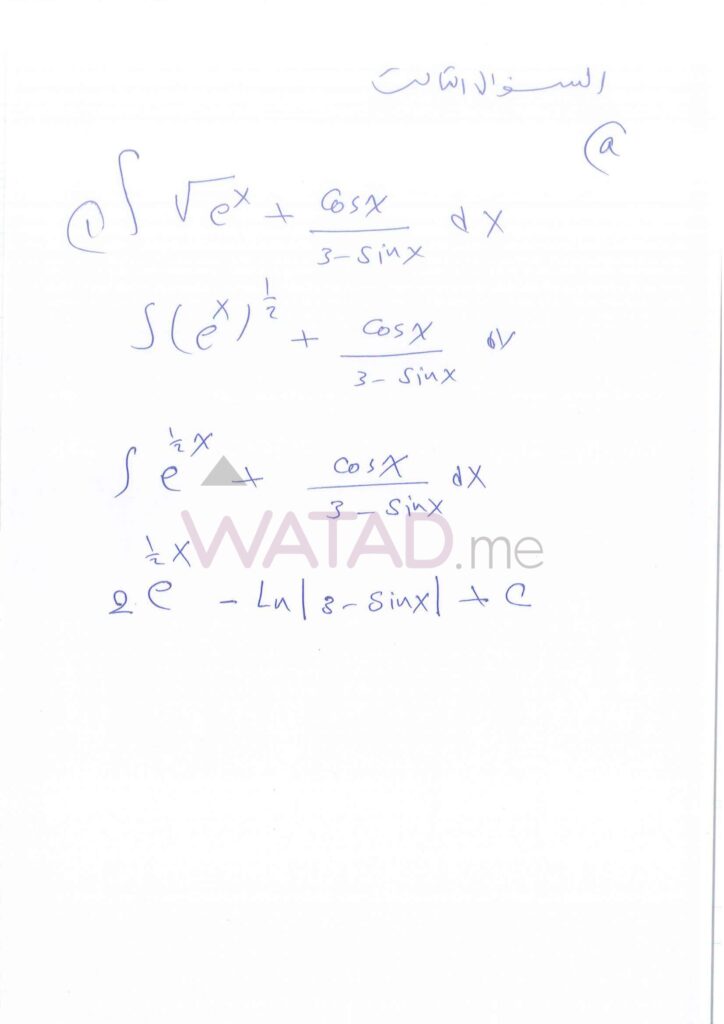 السؤال الثالث
a
1) ∫ √e^x + cosx / 3 - sinx dx
∫ (e^x)^1/2 + cosx / 3 - sinx dx
∫ e^1/2 x + cosx / 3 - sinx dx
WATAD.me
2 e^1/2 x - Ln|3 - sinx| + C